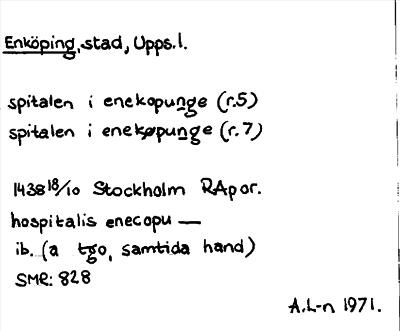 Enköping, stad, Upps.l.
spitalen i enekopunge (r.5)
spitalen i enekøpunge (r.7)
1438 18/10 Stockholm RAp or.
hospitalis enecopu —
ib. (a tgo, samtida hand)
SMR: 828
A.L-n 1971.